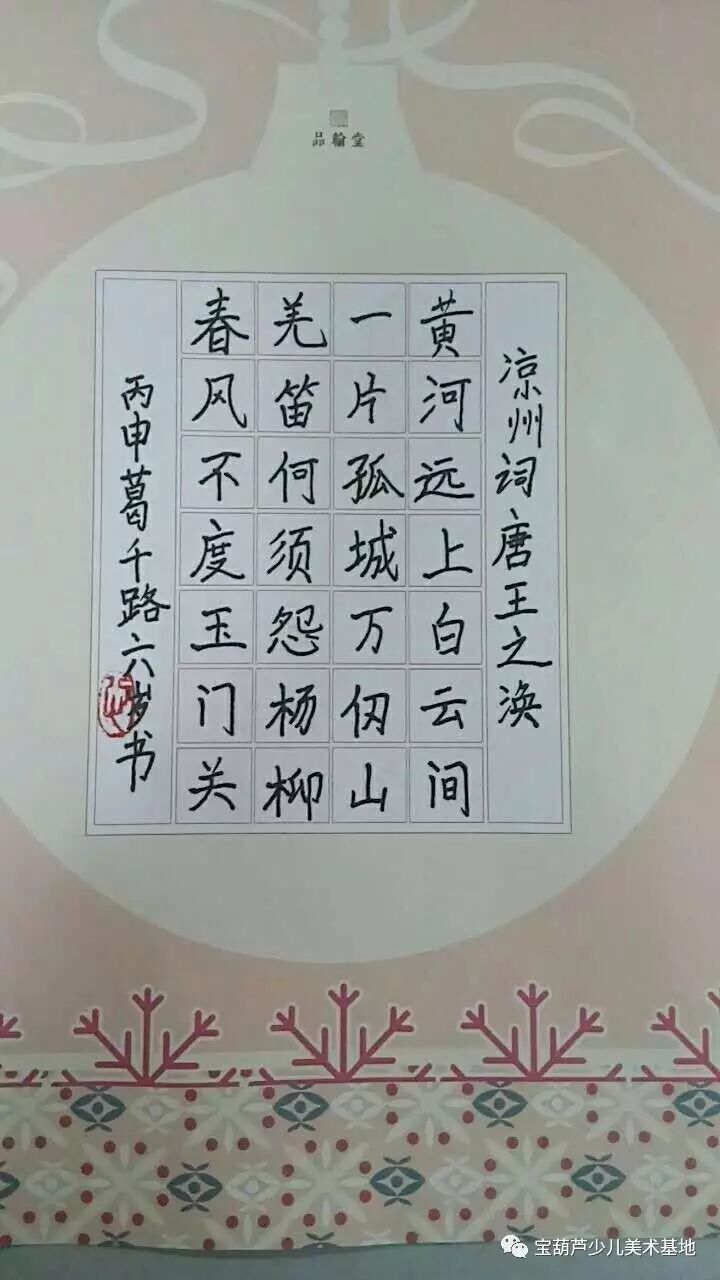 品翰堂
凉州词唐王之涣
黄河远上白云间
一片孤城万仞山
羌笛何须怨杨柳
春风不度玉门关
丙申葛千路六岁书
宝葫芦少儿美术基地